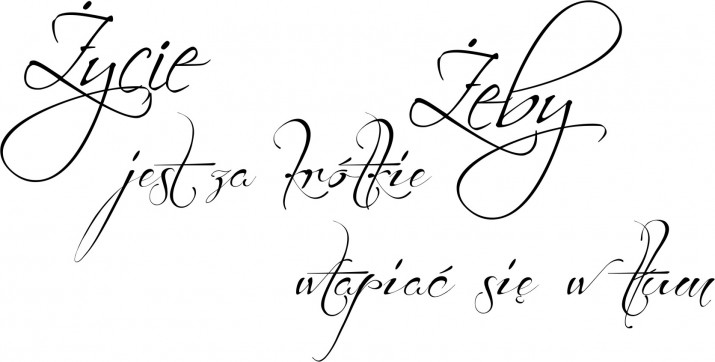 Życie
jest za krótkie
Żeby
wtapiać się w tłum